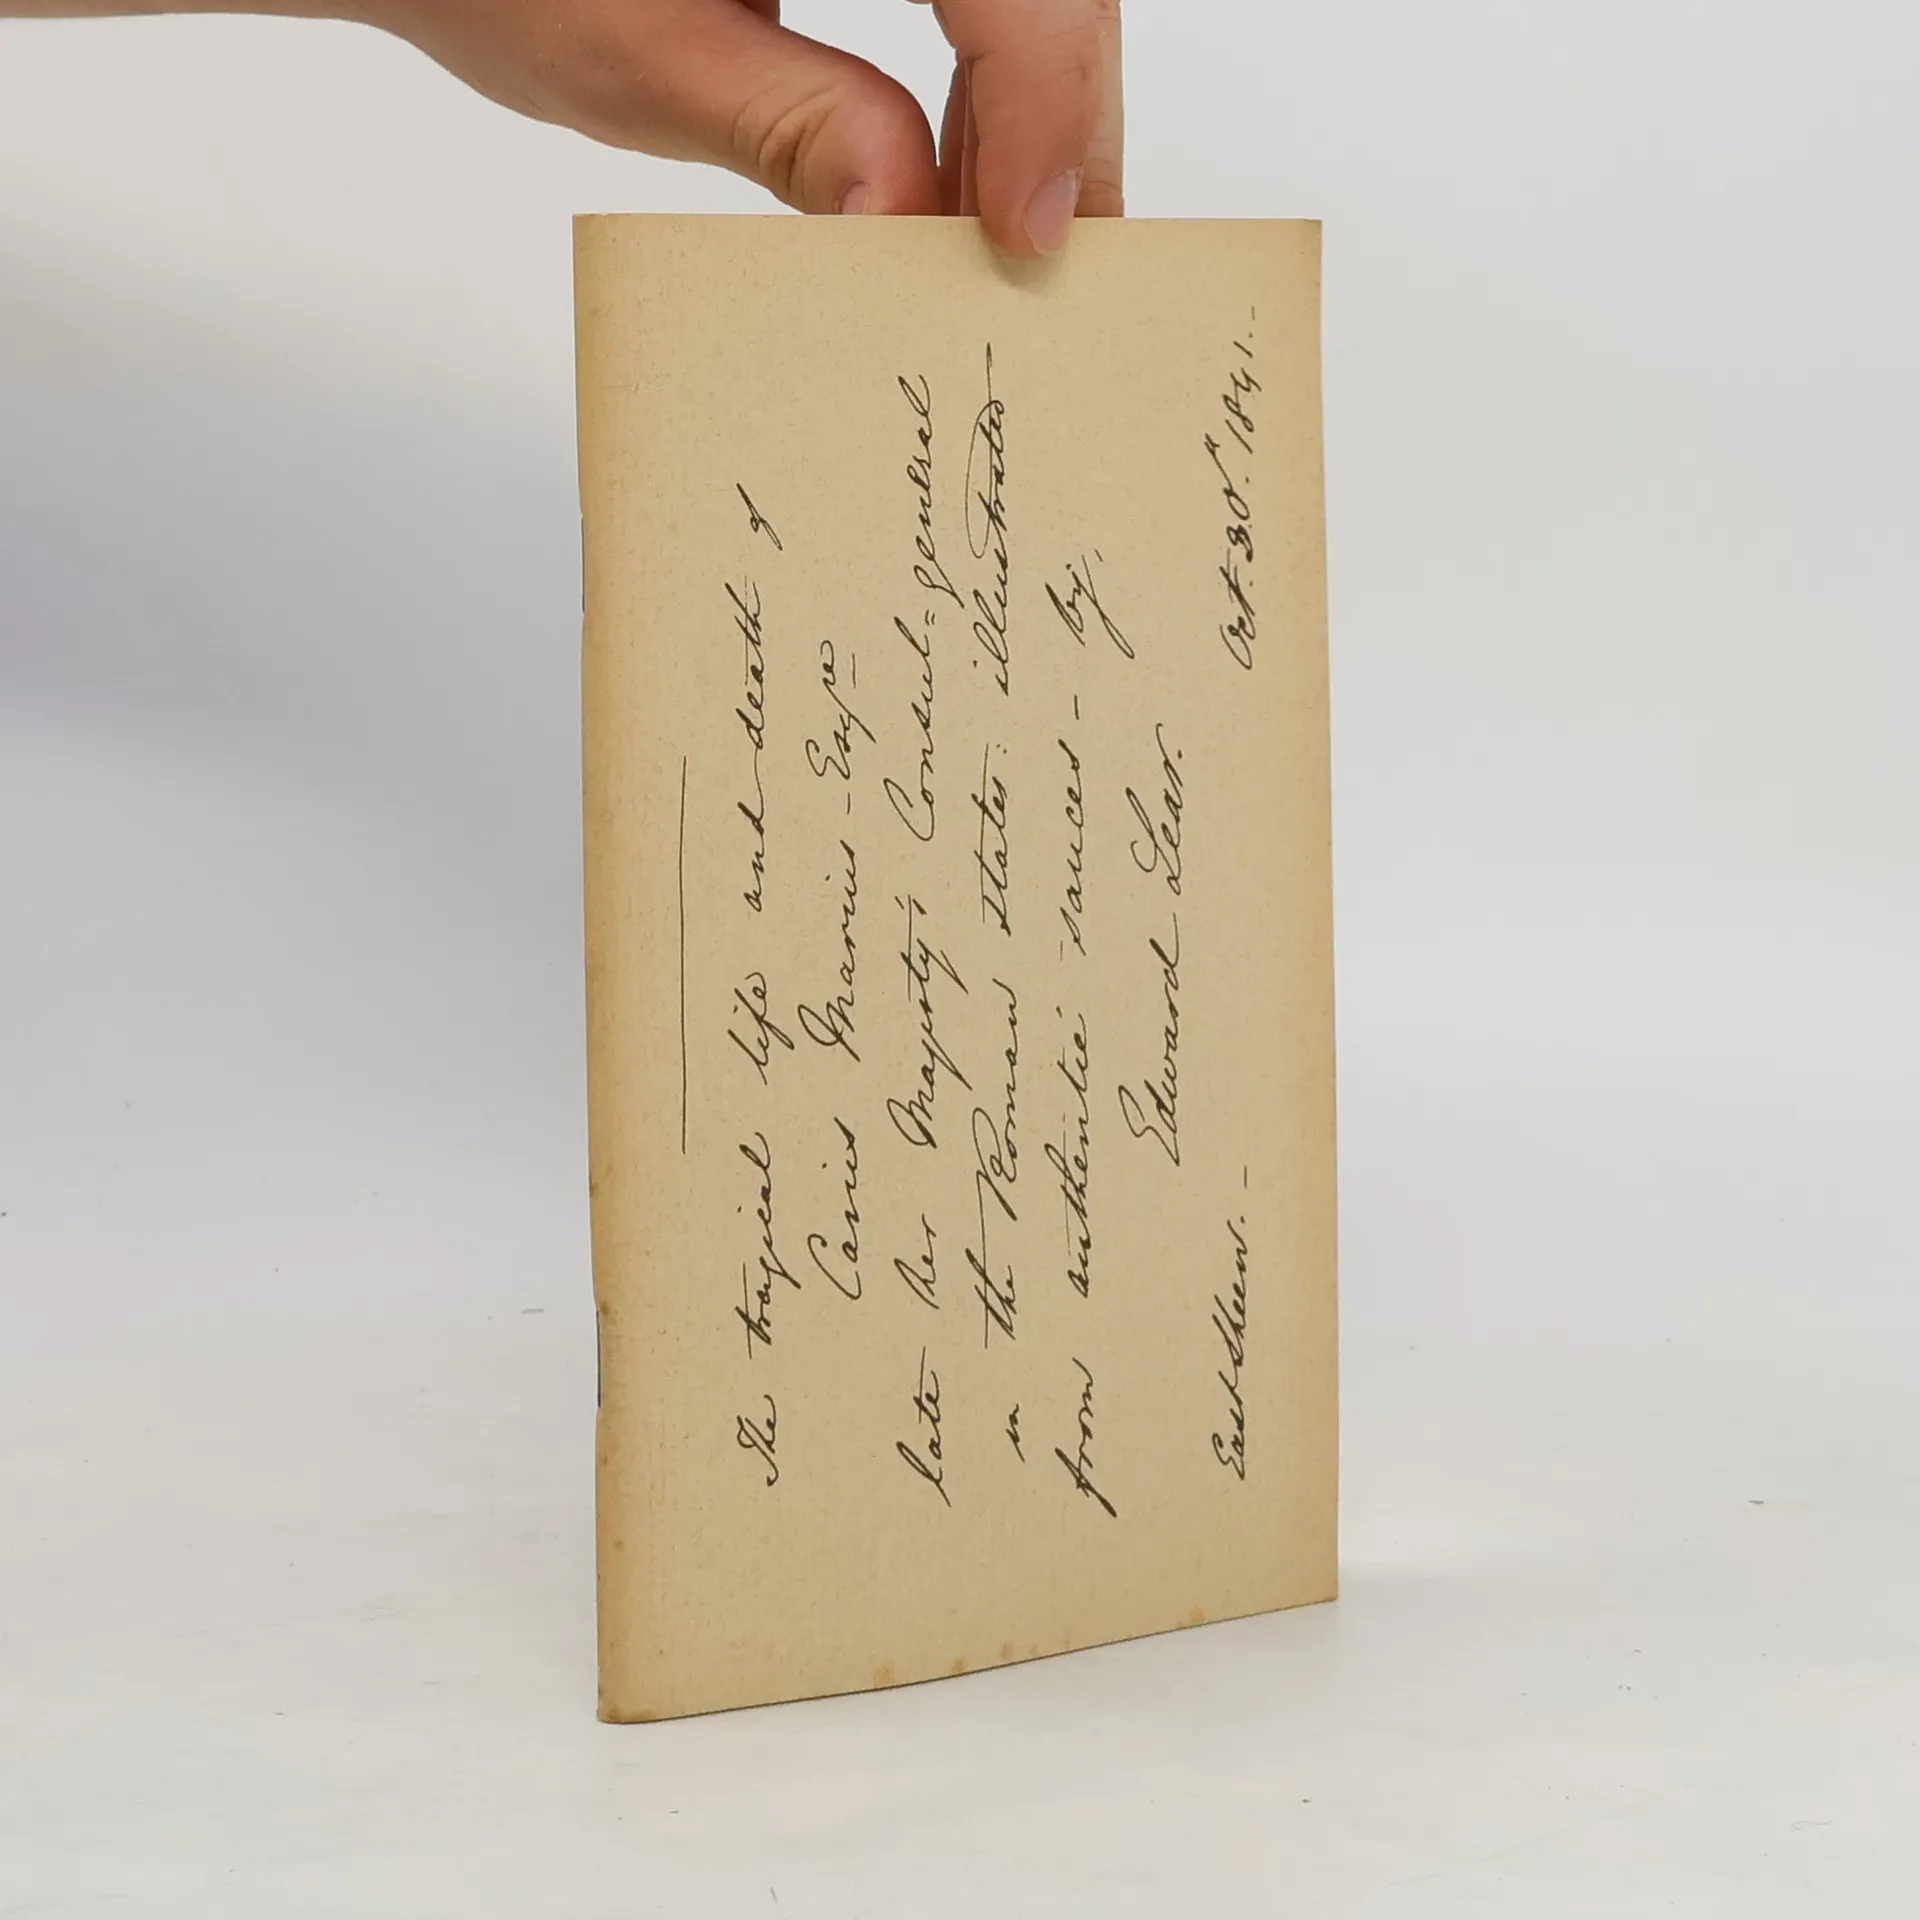 The tragical life and death of
Caius Marius - Esqre
late Her Majesty's Consul=general
in the Roman states: illustrated
from authentic sauces - by,
Edward Lear.
East Sheen. - Oct. 30th 1841. -